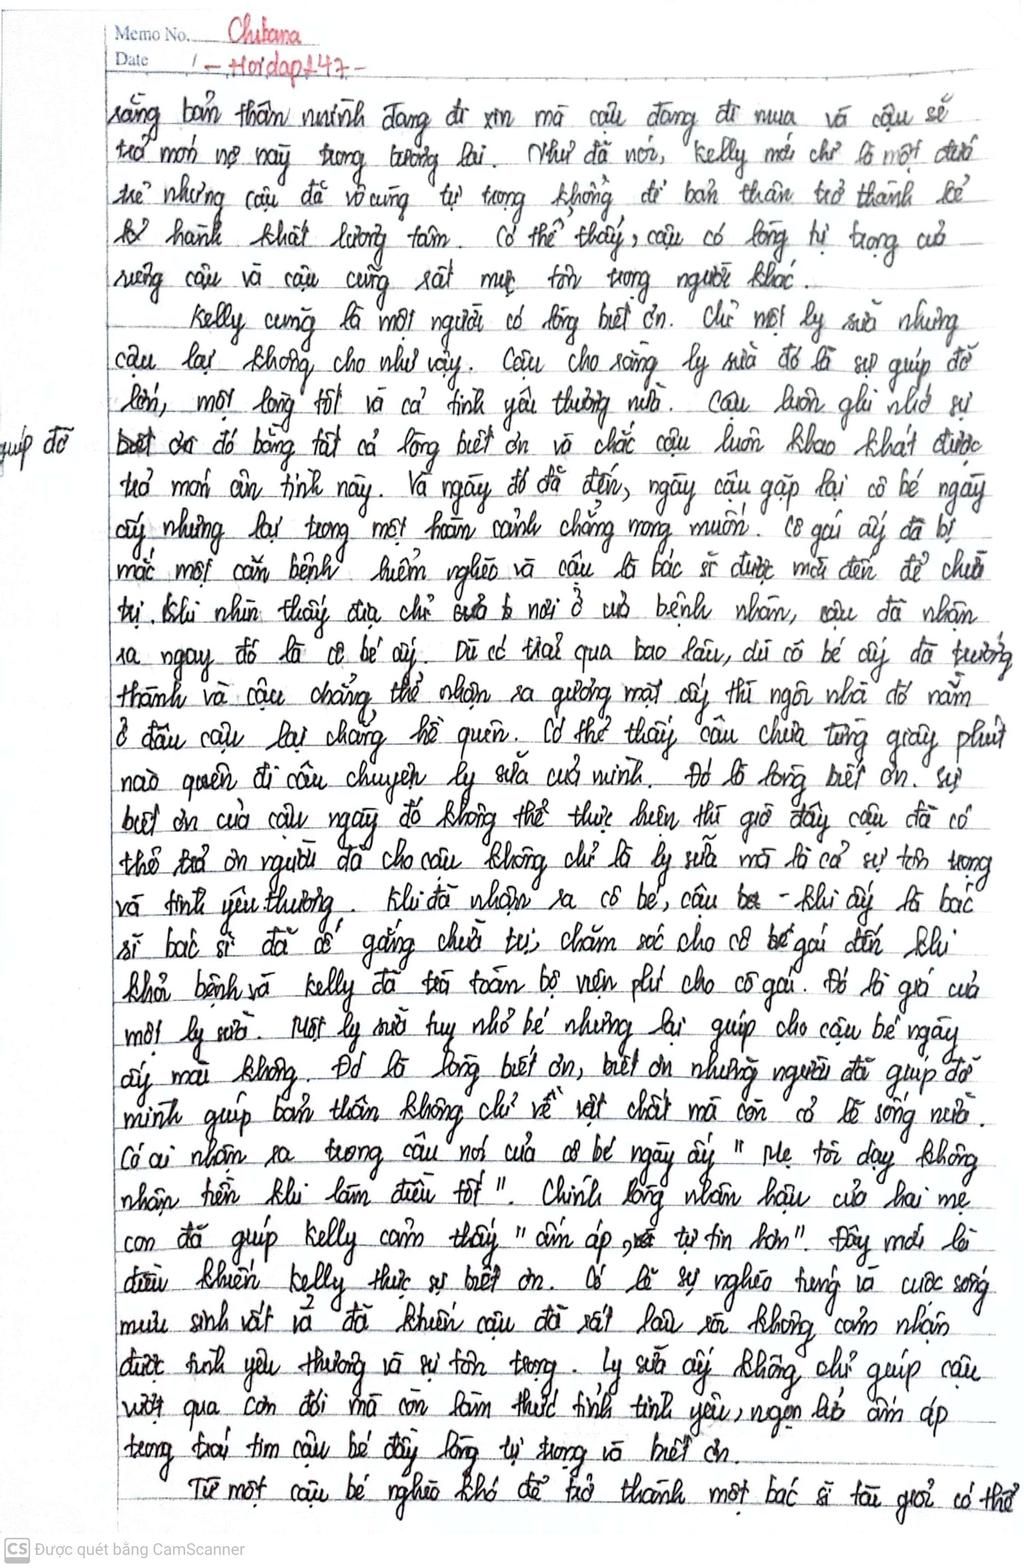 Memo No. Chibana
Date / - Hoidap247 -
rằng bản thân mình đang đi xin mà cậu đang đi mua và cậu sẽ
trả món nợ này trong tương lai. Như đã nói, Kelly mới chỉ là một đứa
trẻ nhưng cậu đã vô cùng tự trọng không để bản thân trở thành kẻ
hành khất lương tâm. Có thể thấy, cậu có lòng tự trọng của
riêng cậu và cậu cũng rất mực tôn trọng người khác.
Kelly cũng là một người có lòng biết ơn. Chỉ một ly sữa nhưng
cậu lại không cho như vậy. Cậu cho rằng ly sữa đó là sự giúp đỡ
lớn, một lòng tốt và cả tình yêu thương nữa. Cậu luôn ghi nhớ sự
giúp đỡ đó bằng tất cả lòng biết ơn và chắc cậu luôn khao khát được
trả món ân tình này. Và ngày đó đã đến, ngày cậu gặp lại cô bé ngày
ấy nhưng lại trong một hoàn cảnh chẳng mong muốn. Cô gái ấy đã bị
mắc một căn bệnh hiểm nghèo và cậu là bác sĩ được mời đến để chữa
trị. Khi nhìn thấy địa chỉ nơi ở của bệnh nhân, cậu đã nhận
ra ngay đó là cô bé ấy. Dù có trải qua bao lâu, dù cô bé ấy đã trưởng
thành và cậu chẳng thể nhận ra gương mặt ấy thì ngôi nhà đó nằm
ở đâu cậu lại chẳng hề quên. Có thể thấy cậu chưa từng giây phút
nào quên đi câu chuyện ly sữa của mình. Đó là lòng biết ơn. Sự
biết ơn của cậu ngày đó không thể thực hiện thì giờ đây cậu đã có
thể trả ơn người đã cho cậu không chỉ là ly sữa mà là cả sự tôn trọng
và tình yêu thương. Khi đã nhận ra cô bé, cậu bé - khi ấy là bác
sĩ bác sĩ đã cố gắng chữa trị, chăm sóc cho cô bé gái đến khi
khỏi bệnh và Kelly đã trả toàn bộ viện phí cho cô gái. Đó là giá của
một ly sữa. Một ly sữa tuy nhỏ bé nhưng lại giúp cho cậu bé ngày
ấy mãi không. Đó là lòng biết ơn, biết ơn những người đã giúp đỡ
mình giúp bản thân không chỉ về vật chất mà còn cả lẽ sống nữa.
Có ai nhận ra trong câu nói của cô bé ngày ấy " Mẹ tôi dạy không
nhận tiền khi làm điều tốt". Chính lòng nhân hậu của hai mẹ
con đã giúp Kelly cảm thấy " ấm áp, tự tin hơn". Đây mới là
điều khiến Kelly thực sự biết ơn. Có lẽ sự nghèo túng và cuộc sống
mưu sinh vất vả đã khiến cậu đã rất lâu rồi không cảm nhận
được tình yêu thương và sự tôn trọng. Ly sữa ấy không chỉ giúp cậu
vượt qua cơn đói mà còn làm thức tỉnh tình yêu, ngọn lửa ấm áp
trong trái tim cậu bé đầy lòng tự trọng và biết ơn.
Từ một cậu bé nghèo khó để trở thành một bác sĩ tài giỏi có thể
CS Được quét bằng CamScanner